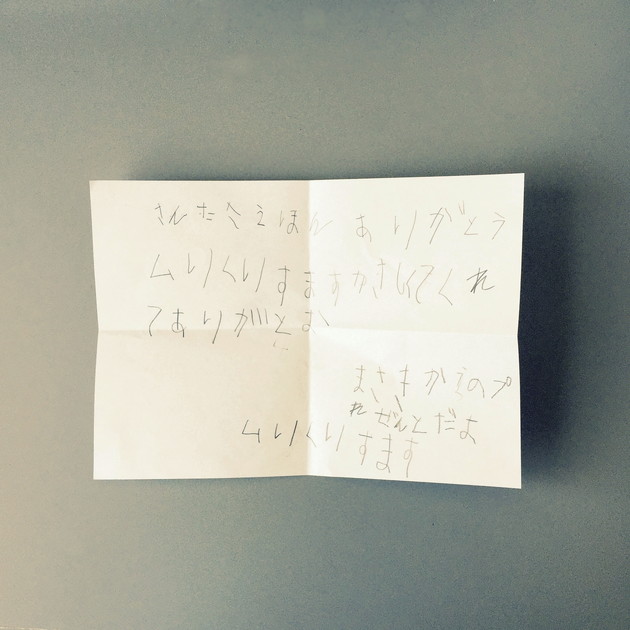 さんたさへえほん ありがとう
ムリくりすますかさしてくれ
てありがとお
まさきからのプ
れぜんとだよ
ムりくり すます